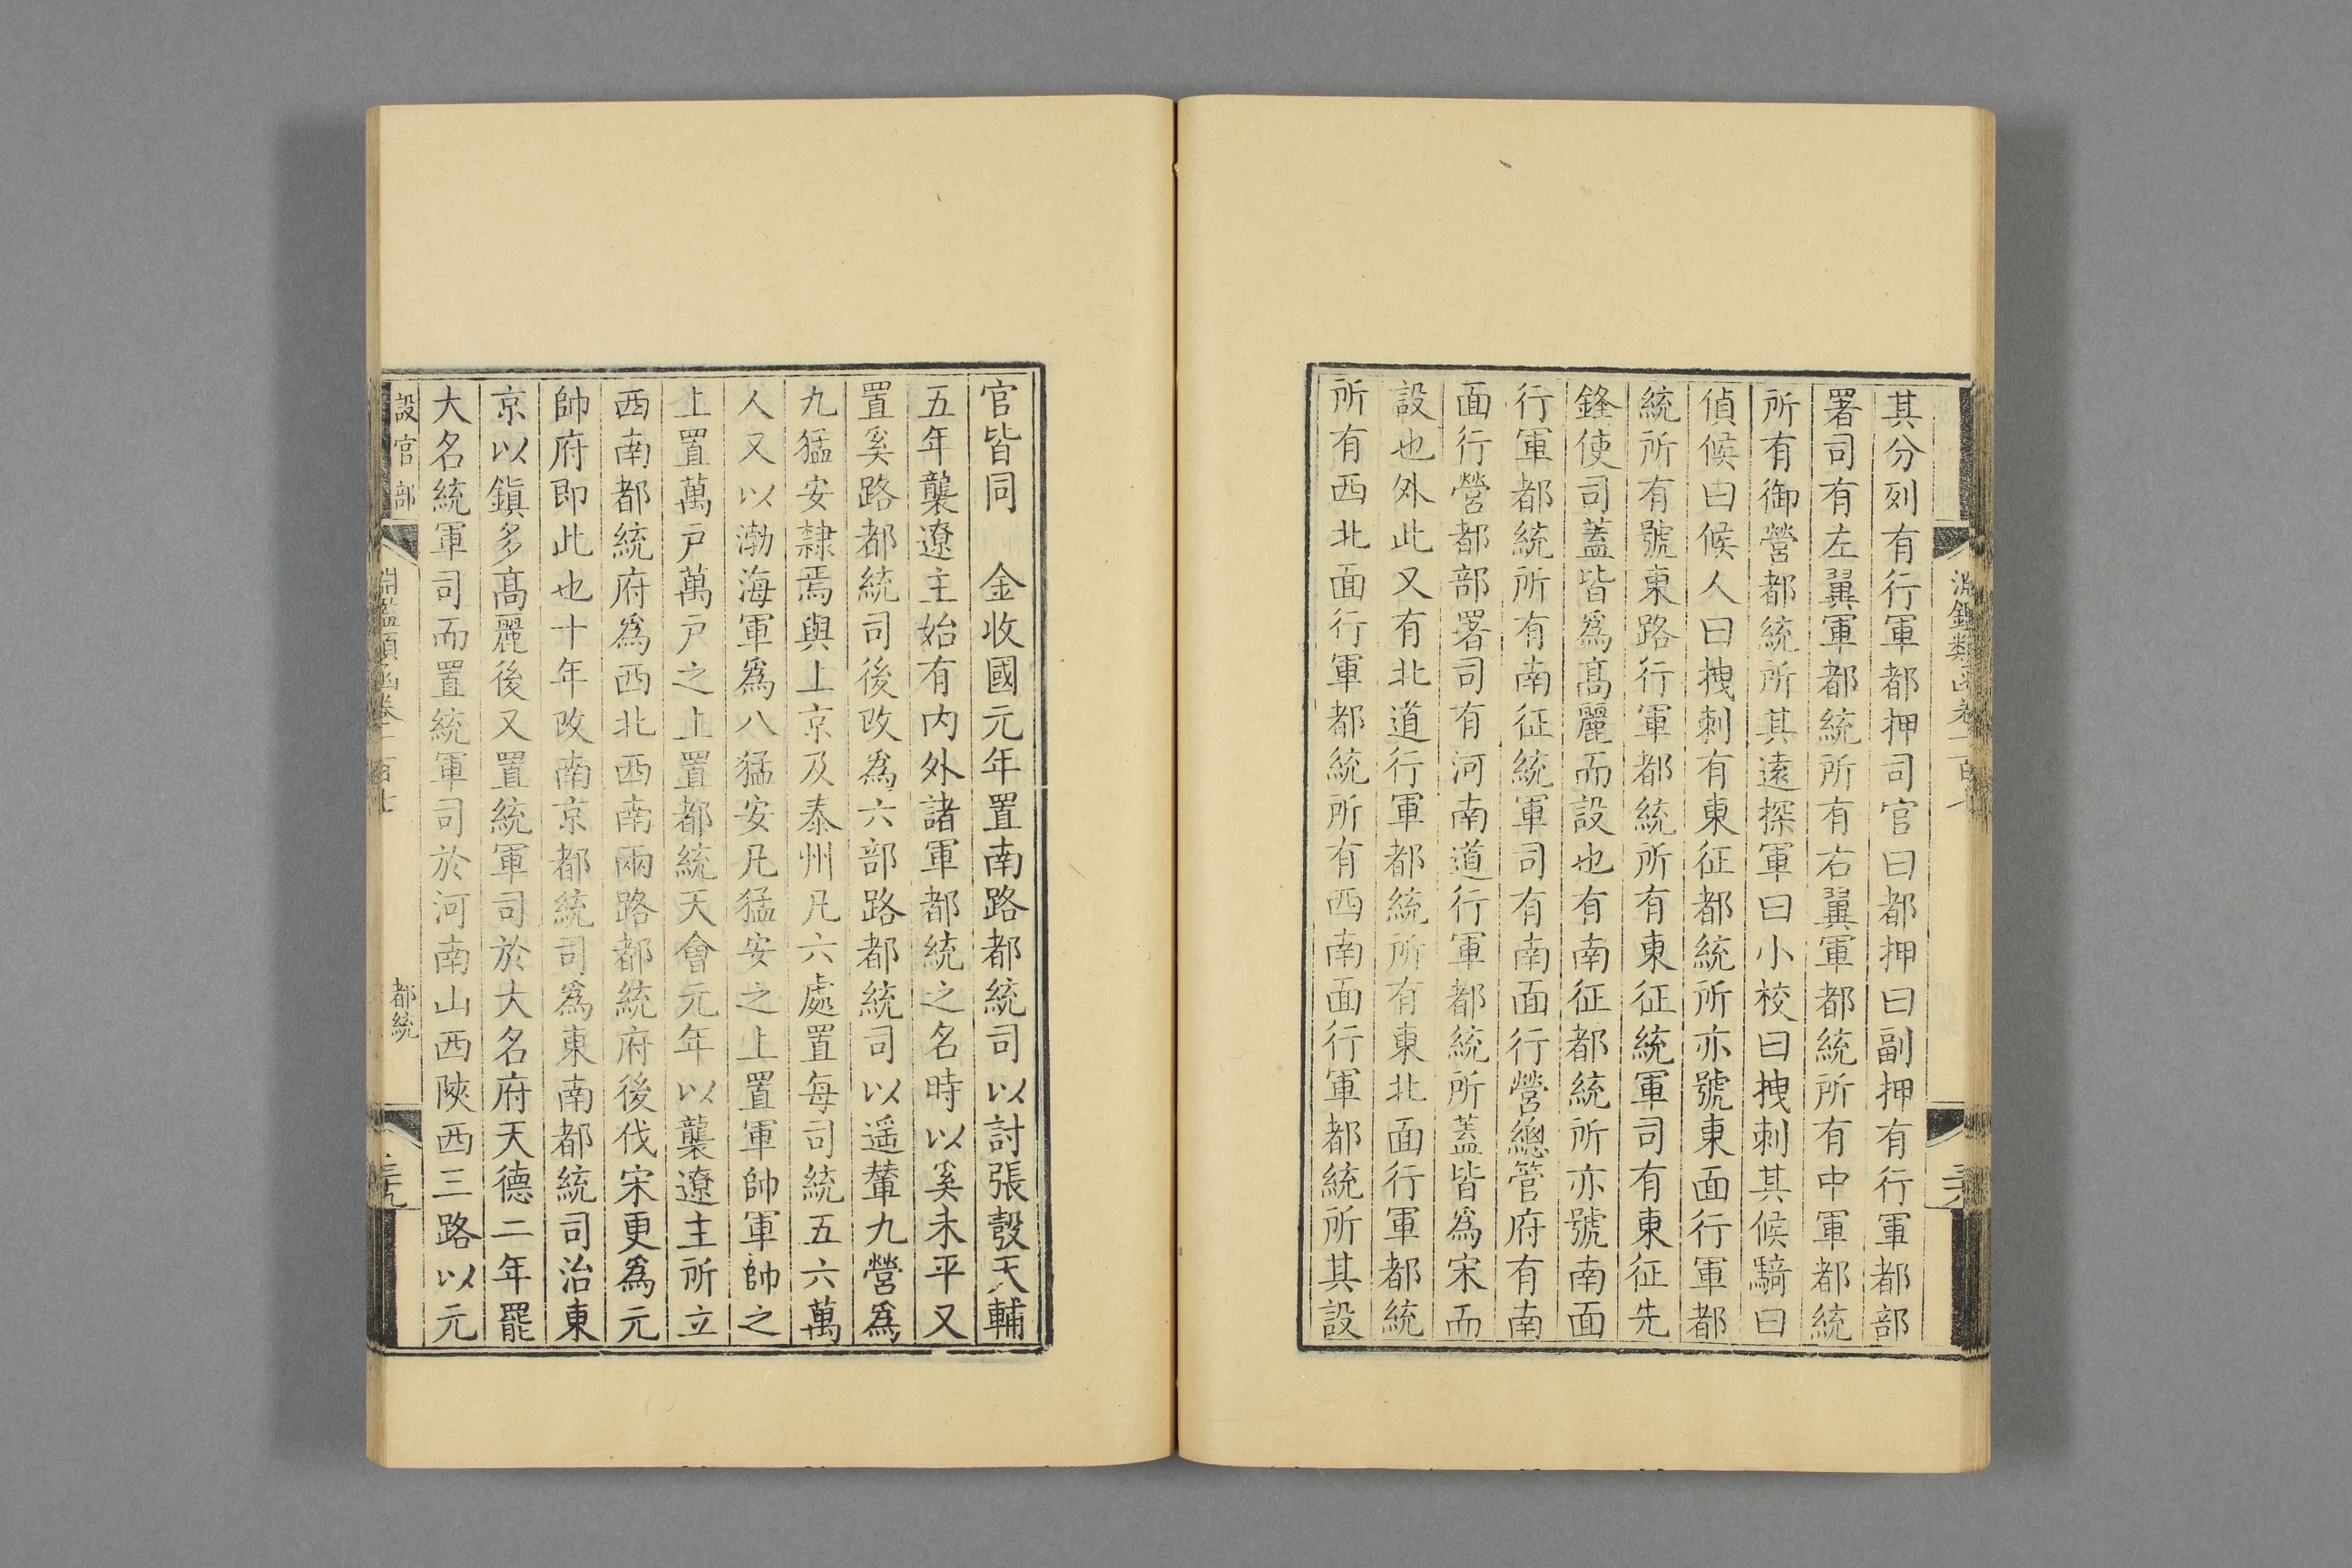 其分列有行軍都押司官曰都押曰副押有行軍都部
署司有左翼軍都統所有右翼軍都統所有中軍都統
所有御營都統所其遠探軍曰小校曰拽剌其候騎曰
偵候曰候人曰拽剌有東征都統所亦號東面行軍都
統所有號東路行軍都統所有東征統軍司有東征先
鋒使司蓋皆爲髙麗而設也有南征都統所亦號南面
行軍都統所有南征統軍司有南面行營總管府有南
面行營都部署司有河南道行軍都統所蓋皆爲宋而
設也外此又有北道行軍都統所有東北面行軍都統
所有西北面行軍都統所有西南面行軍都統所其設
官皆同　金收國元年置南路都統司以討張㲄天輔
五年襲遼主始有内外諸軍都統之名時以奚未平又
置奚路都統司後改爲六部路都統司以遥輦九營爲
九猛安隸焉與上京及泰州凡六處置每司統五六萬
人又以渤海軍爲八猛安凡猛安之上置軍帥軍帥之
上置萬戸萬戸之上置都統天會元年以襲遼主所立
西南都統府爲西北西南兩路都統府後伐宋更爲元
帥府即此也十年改南京都統司爲東南都統司治東
京以鎭多髙麗後又置統軍司於大名府天德二年罷
大名統軍司而置統軍司於河南山西陝西三路以元
設官部
都統